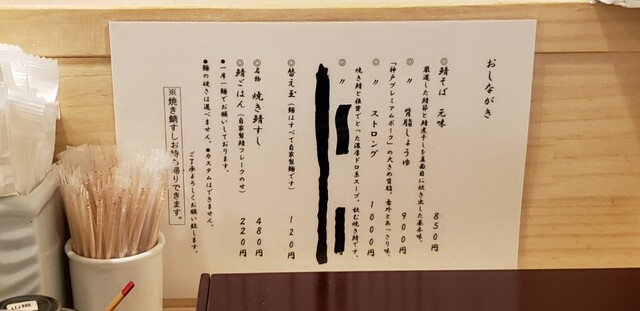 おしながき
◎鯖そば 元味 850円
厳選した鯖節と鯖煮干しを真面目に炊き出した基本味。
◎〃 背脂しょうゆ 900円
「神戸プレミアムポーク」の大きめ背脂。意外とあっさり味。
◎〃 ストロング 1000円
焼き鯖と根菜でとった濃厚ドロ系スープ。飲む焼き鯖です。
◎〃
◎替え玉(麺はすべて自家製麺です) 120円
名物 焼き鯖すし 480円
◎鯖ごはん(自家製鯖フレークのせ) 220円
●一席一麺でお願いしております。
●麺の硬さは選べません。●カスタムはできません。
ご了承よろしくお願い致します。
※焼き鯖すしお持ち帰りできます。